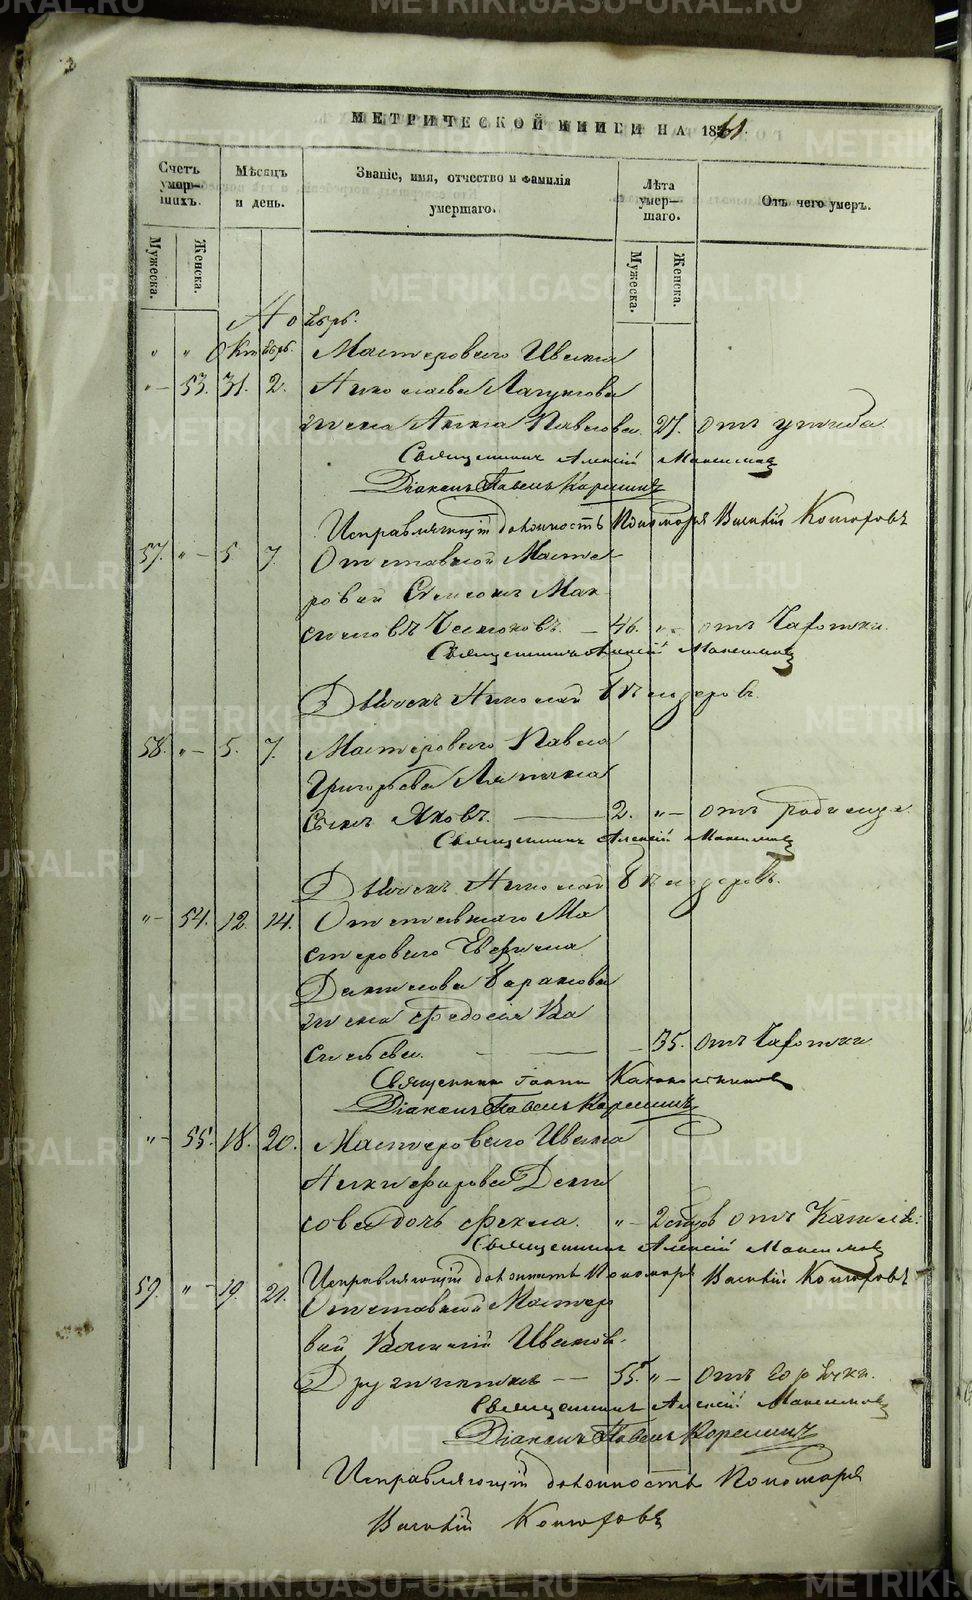 METRIKI.GASO-URAL.RU
МЕТРИЧЕСКОЙ КНИГИ НА 1861.
Счетъ умер-шихъ.
Мѣсяцъ и день.
Званіе, имя, отчество и фамилія умершаго.
Лѣта умер-шаго.
Отъ чего умеръ.
Мужеска. Женска.
Мужеска. Женска.
Ноябрь.
" " Октябрь. Мастероваго Ивана
" 53. 31. 2. Николаева
жена Анна Павлова. 27. отъ
Священникъ Алексій Максимов
Діаконъ Павелъ Корелинъ
Исправляющій должность Пономаря Василій
57. " 5 7. Отставной Масте-
ровый Мак-
симовъ 46. " отъ Чахотки.
Священникъ Алексій Максимов
Дьячекъ Николай
58. " 5. 7. Мастероваго Павла
Григорьева
сынъ Яковъ. 2. " отъ родимца
Священникъ Алексій Максимов
Дьячекъ Николай
" 54. 12. 14. Отставнаго Ма
стероваго Евфима
Данилова Баранова
жена Федосія Ва
сильева. 35. отъ Чахотки
Священникъ Іоаннъ
Діаконъ Павелъ Корелинъ
" 55. 18. 20. Мастероваго Ивана
Никифорова Дени
сова дочь Фекла. " 2 отъ Кашля.
Священникъ Алексій Максимов
Исправляющій должность Пономаря Василій
59. " 19. 21. Отставной Мастеро
вый Василій Иванов.
Дружинин 55. " отъ горячки.
Священникъ Алексій Максимов
Діаконъ Павелъ Корелинъ
Исправляющій должность Пономаря
Василій